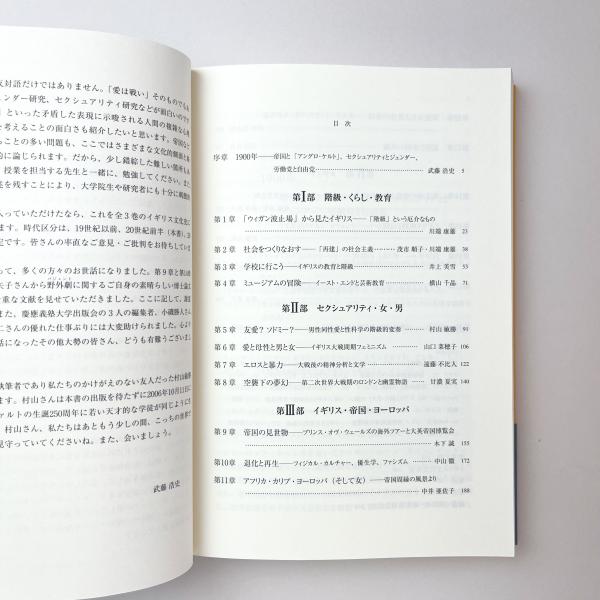 反対語だけではありません。「愛は戦い」そのものでも
ェンダー研究、セクシュアリティ研究などが面白いのです
」といった矛盾した表現に示唆される人間の複雑な心理
を考えることの面白さも紹介したいと思います。帝国など
ことの多い問題も、ここではさまざまな文化的側面と
的に論じられます。だから、少し錯綜した難しい箇所も
、授業を担当する先生と一緒に、勉強してください。また
を残すことにより、大学院生や研究者にも十分に
入っていただけたなら、これを全3巻のイギリス文化史に
ます。時代区分は、19世紀以前、20世紀前半（本書）、
定です。皆さんの率直なご意見・ご批判をお待ちしていま
って、多くの方々のお世話になりました。第9章と第10章
矢子さんから野外劇に関するご自身の素晴らしい博士論
重な文献を見せていただきました。ここに記して、謝意
また、慶應義塾大学出版会の3人の編集者、小磯勝人さん
こさんの優れた仕事ぶりには大変助けられました。心より
話になったその他大勢の皆さん、どうも有難うございま
執筆者であり私たちのかけがえのない友人だった村山敏勝
ます。村山さんは本書の出版を待たずに2006年10月11日に
ァルトの生誕250周年に若い天才的な学徒が同じように
村山さん、私たちはあともう少しの間、こっちの世界で
見守っていてくださいね。また、会いましょう。
武藤 浩史
目 次
序章 1900年――帝国と「アングロ・ケルト」、セクシュアリティとジェンダー、
労働党と自由党 武藤 浩史 5
第Ⅰ部 階級・くらし・教育
第1章 『ウィガン波止場』から見たイギリス――「階級」という厄介なもの
川端 康雄 23
第2章 社会をつくりなおす――「再建」の社会主義 茂市 順子・川端 康雄 38
第3章 学校に行こう――イギリスの教育と階級 井上 美雪 54
第4章 ミュージアムの冒険――イースト・エンドと芸術教育 横山 千晶 71
第Ⅱ部 セクシュアリティ・女・男
第5章 友愛？ ソドミー？――男性同性愛と性科学の階級的変奏 村山 敏勝 91
第6章 愛と母性と男と女――イギリス大戦間期フェミニズム 山口 菜穂子 106
第7章 エロスと暴力――大戦後の精神分析と文学 遠藤 不比人 122
第8章 空襲下の夢幻――第二次世界大戦期のロンドンと幽霊物語 甘濃 夏実 140
第Ⅲ部 イギリス・帝国・ヨーロッパ
第9章 帝国の見世物――プリンス・オヴ・ウェールズの海外ツアーと大英帝国博覧会
木下 誠 155
第10章 退化と再生――フィジカル・カルチャー、優生学、ファシズム 中山 徹 172
第11章 アフリカ・カリブ・ヨーロッパ（そして女）――帝国周縁の風景より
中井 亜佐子 188